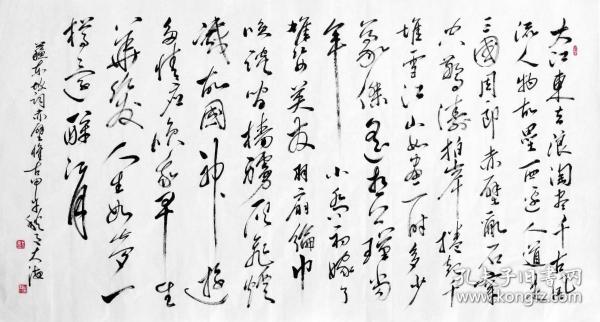 大江東去浪淘盡千古風
流人物故壘西邊人道是
三國周郎赤壁亂石穿
空驚濤拍岸捲起千
堆雪江山如畫一時多少
豪傑遙想公瑾當
年 小喬初嫁了
雄姿英發羽扇綸巾
笑談間檣艣灰飛煙
滅故國神遊
多情應笑我早生
華髮人生如夢一
樽還酹江月
蘇東坡詞赤壁懷古甲午秋 大海
孔夫子旧书网
kongfz.com